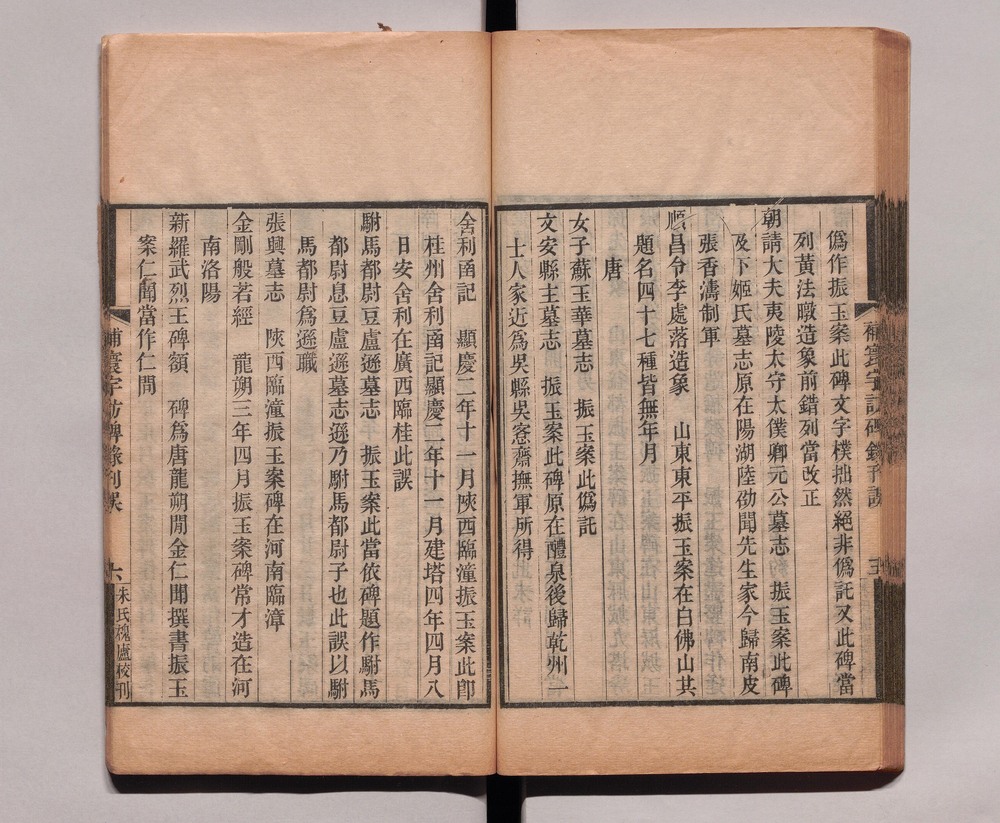 偽作振玉案此碑文字樸拙然絕非偽託又此碑當
列黃法㬓造象前錯列當改正
朝請大夫夷陵太守太僕卿元公墓志 振玉案此碑
及下姬氏墓志原在陽湖陸劭聞先生家今歸南皮
張香濤制軍
順昌令李處落造象 山東東平振玉案在白佛山其
題名四十七種皆無年月
唐
女子蘇玉華墓志 振玉案此偽託
文安縣主墓志 振玉案此碑原在醴泉後歸乾州一
士人家近為吳縣吳愙齋撫軍所得
補寰宇訪碑錄刊誤
五
舍利函記 顯慶二年十一月陝西臨潼振玉案此卽
桂州舍利函記顯慶二年十一月建塔四年四月八
日安舍利在廣西臨桂此誤
駙馬都尉豆盧遜墓志 振玉案此當依碑題作駙馬
都尉息豆盧遜墓志遜乃駙馬都尉子也此誤以駙
馬都尉為遜職
張興墓志 陝西臨潼振玉案碑在河南臨漳
金剛般若經 龍朔三年四月振玉案碑常才造在河
南洛陽
新羅武烈王碑額 碑為唐龍朔閒金仁聞撰書振玉
案仁聞當作仁問
補寰宇訪碑錄刊誤
六
朱氏槐廬校刊